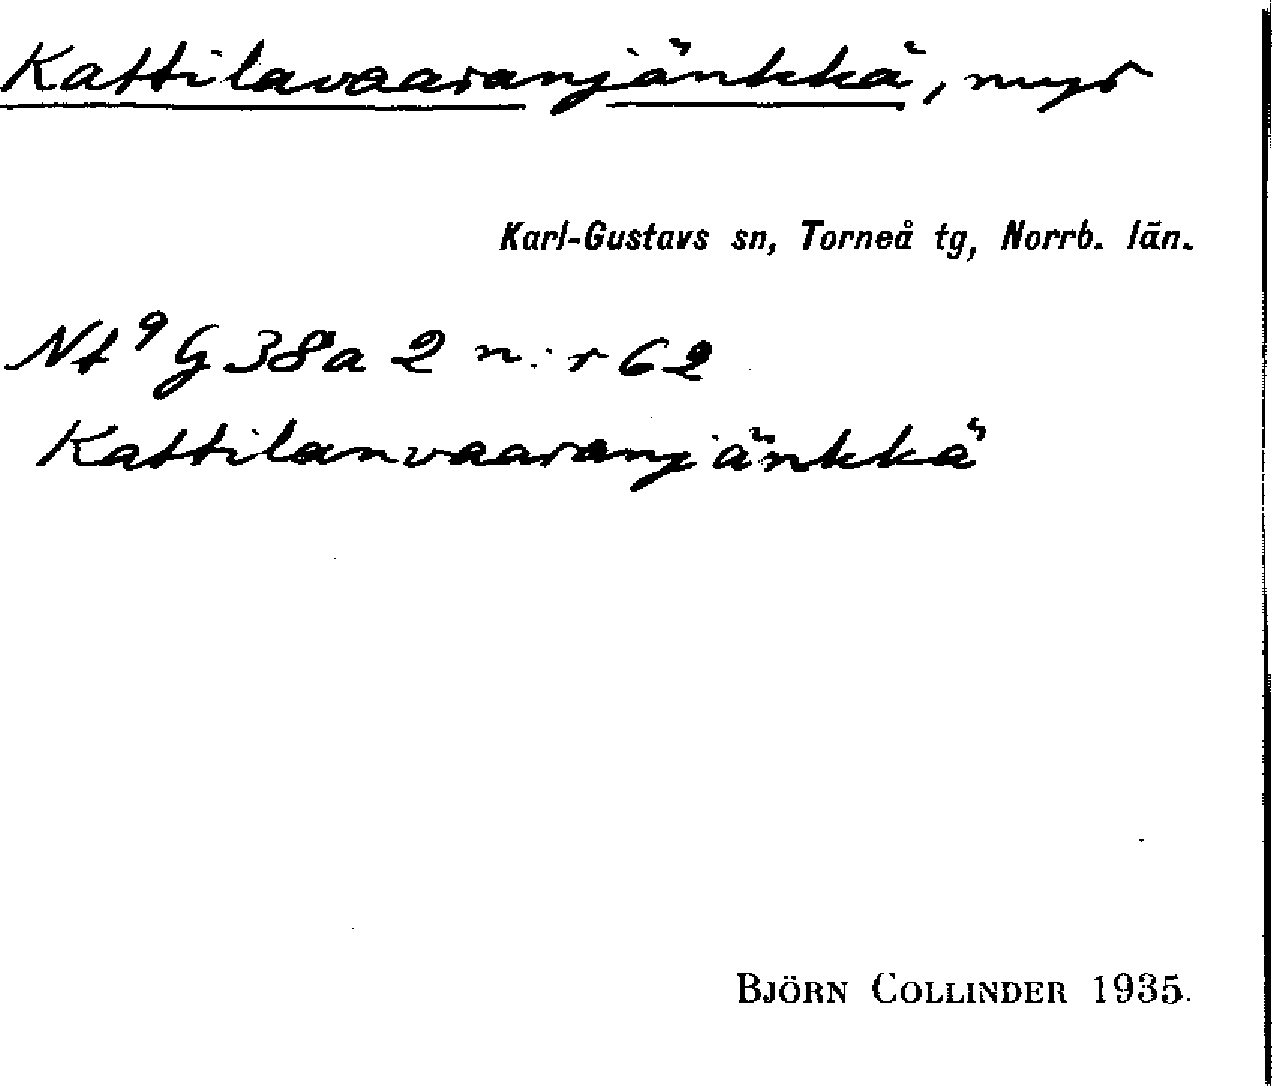 Kattilavaaranjänkkä, myr
Karl-Gustavs sn, Torneå tg, Norrb. län.
Nt⁹ G 38a 2 n:r 62
Kattilanvaaranjänkkä
BJÖRN COLLINDER 1935.